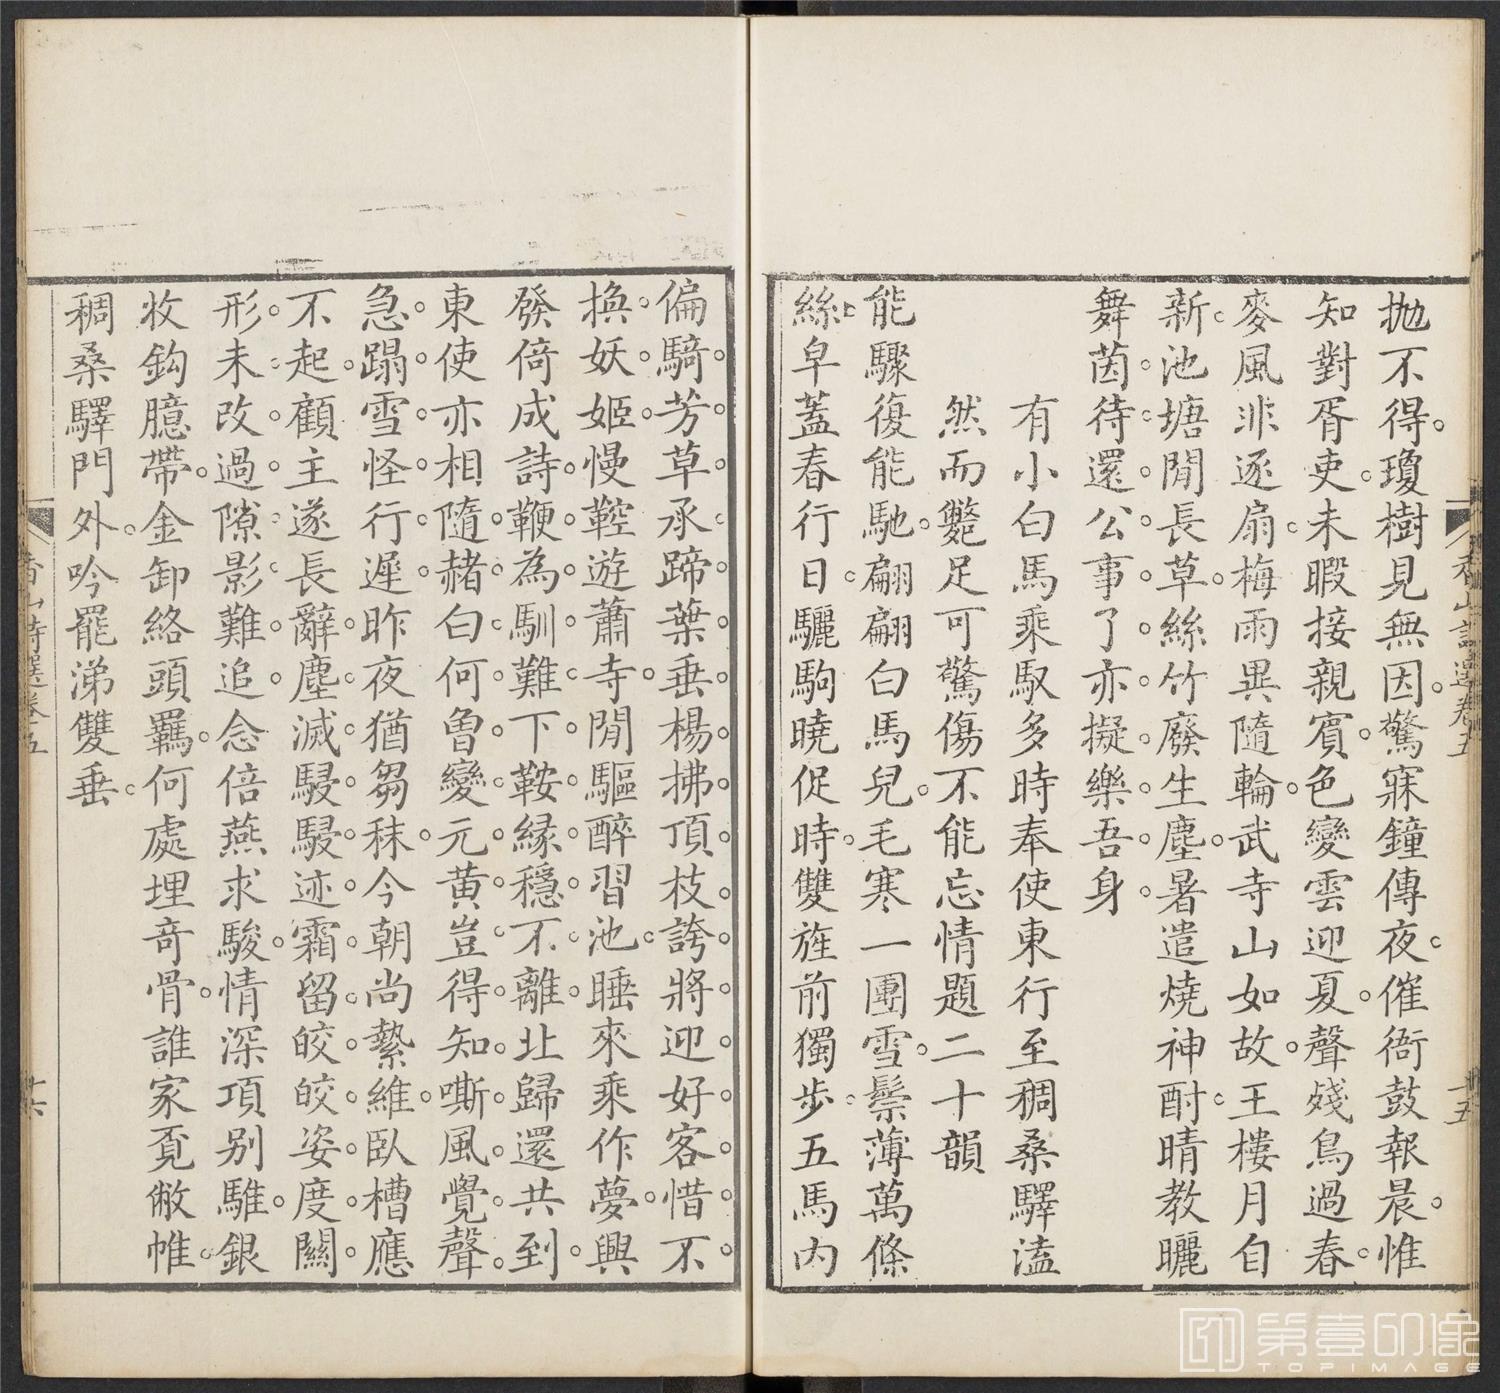 拋不得瓊樹見無因驚寐鐘傳夜催衙鼓報晨惟
知對胥吏未暇接親賓色變雲迎夏聲殘鳥過春
麥風非逐扇梅雨異隨輪武寺山如故王樓月自
新池塘閒長草絲竹廢生塵暑遣燒神酎晴教曬
舞茵待還公事了亦擬樂吾身
有小白馬乘馭多時奉使東行至稠桑驛溘
然而斃足可驚傷不能忘情題二十韻
能驟復能馳翩翩白馬兒毛寒一團雪鬃薄萬條
絲皁蓋春行日驪駒曉促時雙旌前獨步五馬內
香山詩選卷五
十五
偏騎芳草承蹄葉垂楊拂頂枝誇將迎好客惜不
換妖姬慢鞚遊蕭寺閒驅醉習池睡來乘作夢興
發倚成詩鞭為馴難下鞍緣穩不離北歸還共到
東使亦相隨赭白何曾變元黃豈得知嘶風覺聲
急蹋雪怪行遲昨夜猶芻秣今朝尚縶維臥槽應
不起顧主遂長辭塵滅駸駸迹霜留皎皎姿度關
形未改過隙影難追念倍燕求駿情深項別騅銀
收鈎臆帶金卸絡頭羈何處埋奇骨誰家覓敝帷
稠桑驛門外吟罷涕雙垂
香山詩選卷五
十六
第壹印像
TOPIMAGE